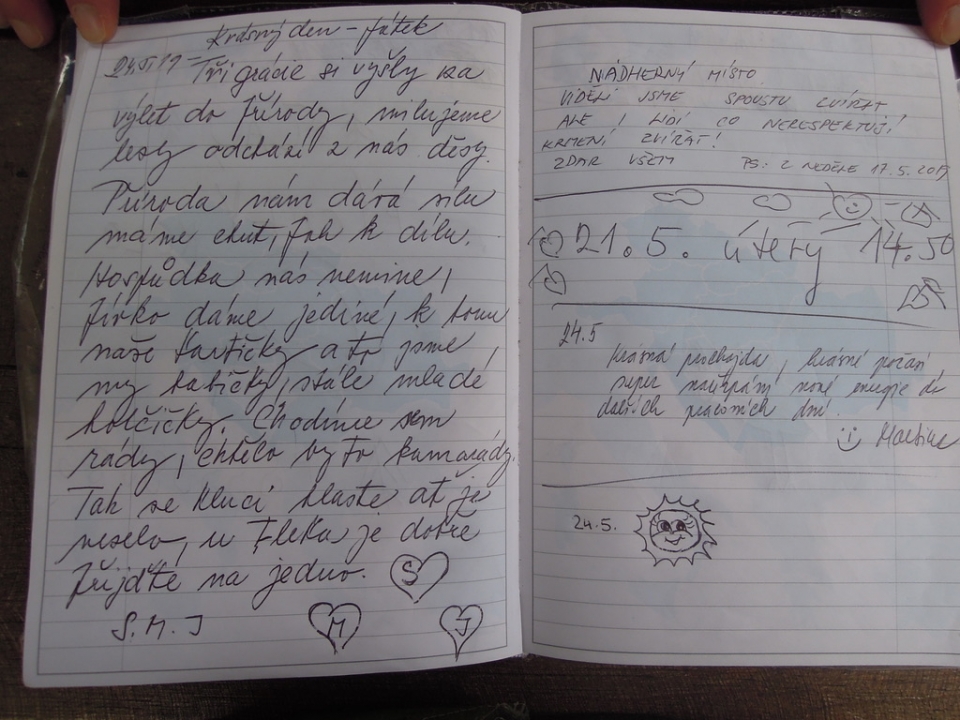 Krásný den - pátek
24.5.19 - Tři grácie si vyšly na
výlet do přírody, milujeme
lesy odchází z nás děsy.
Příroda nám dává sílu
máme chuť, pak k dílu.
Hospůdka nás nemine,
pivko dáme jediné, k tomu
naše kartičky a to jsme
my babičky, stále mladé
holčičky. Chodíme sem
rády, chtělo by to kamarády.
Tak se kluci hlaste ať je
veselo, u Fleka je dobře
přijďte na jedno.
S
S. M. J
M
J
NÁDHERNÝ MÍSTO
VIDĚLI JSME SPOUSTU ZVÍŘAT
ALE I LIDÍ CO NERESPEKTUJÍ
KRMENÍ ZVÍŘAT!
ZDAR VŠEM PS: Z NEDĚLE 17.5.2019
21.5. úterý 14.50
24.5
krásná procházka, krásné počasí
super načerpání nové energie do
dalších pracovních dní.
Martina
24.5.